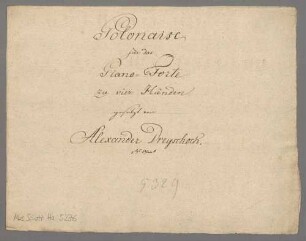 Polonaise
für das
Piano-Forte
zu vier Händen
gesetzt von
Alexander Dreyschock.
5329